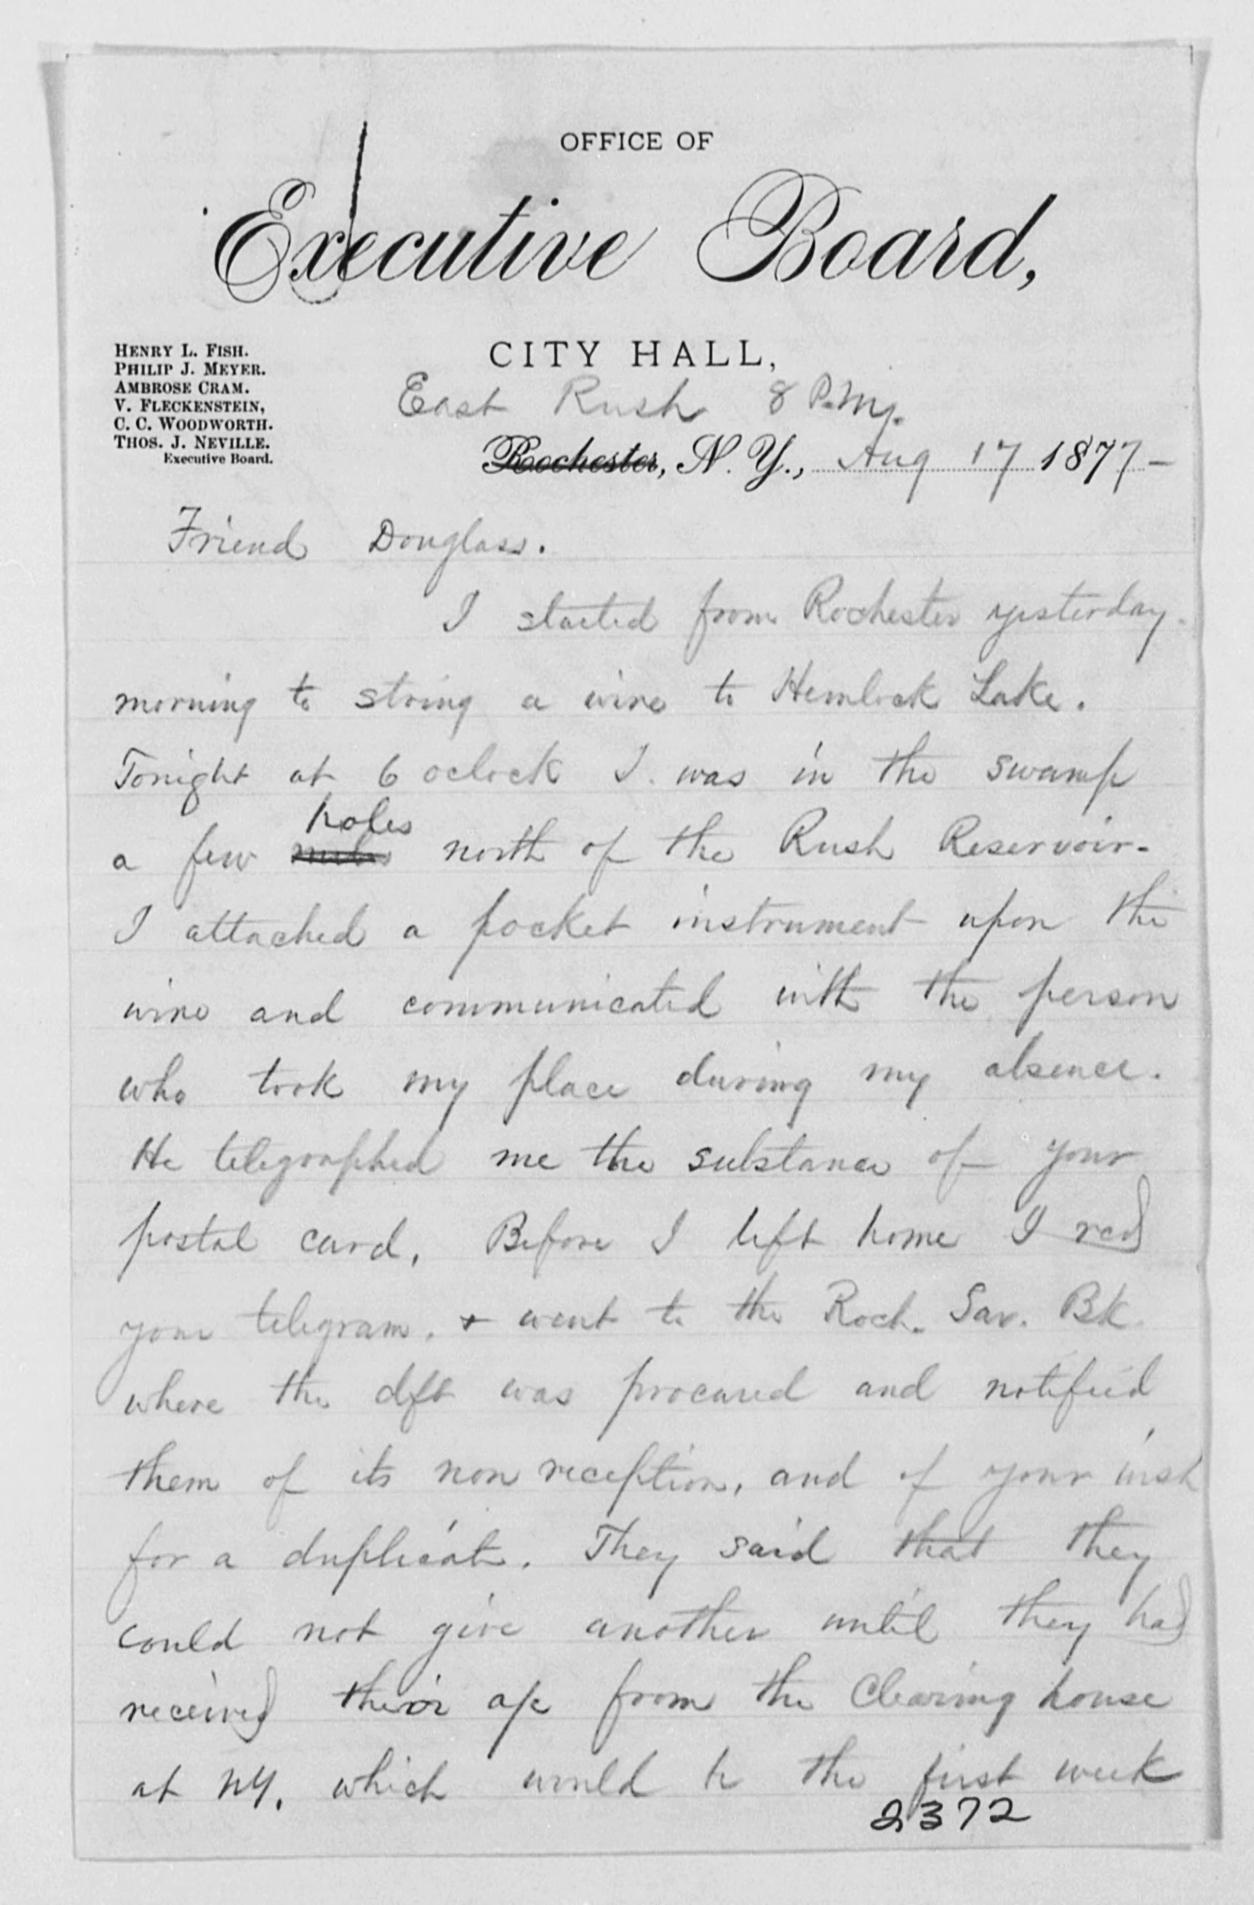 OFFICE OF
Executive Board,
CITY HALL,
HENRY L. FISH.
PHILIP J. MEYER.
AMBROSE CRAM.
V. FLECKENSTEIN,
C. C. WOODWORTH.
THOS. J. NEVILLE.
Executive Board.
East Rush 8 P.M.
Rochester, N. Y., Aug 17 1877-
Friend Douglass.
I started from Rochester yesterday
morning to string a wire to Hemlock Lake.
Tonight at 6 oclock I was in the swamp
holes
a few miles north of the Rush Reservoir.
I attached a pocket instrument upon the
wire and communicated with the person
who took my place during my absence.
He telegraphed me the substance of your
postal card. Before I left home I recd
your telegram. & went to the Roch. Sav. Bk.
where the dft was procured and notified
them of its non reception, and of your wish
for a duplicate. They said that they
could not give another until they had
received their a/c from the Clearing house
at NY. which would be the first week
2372